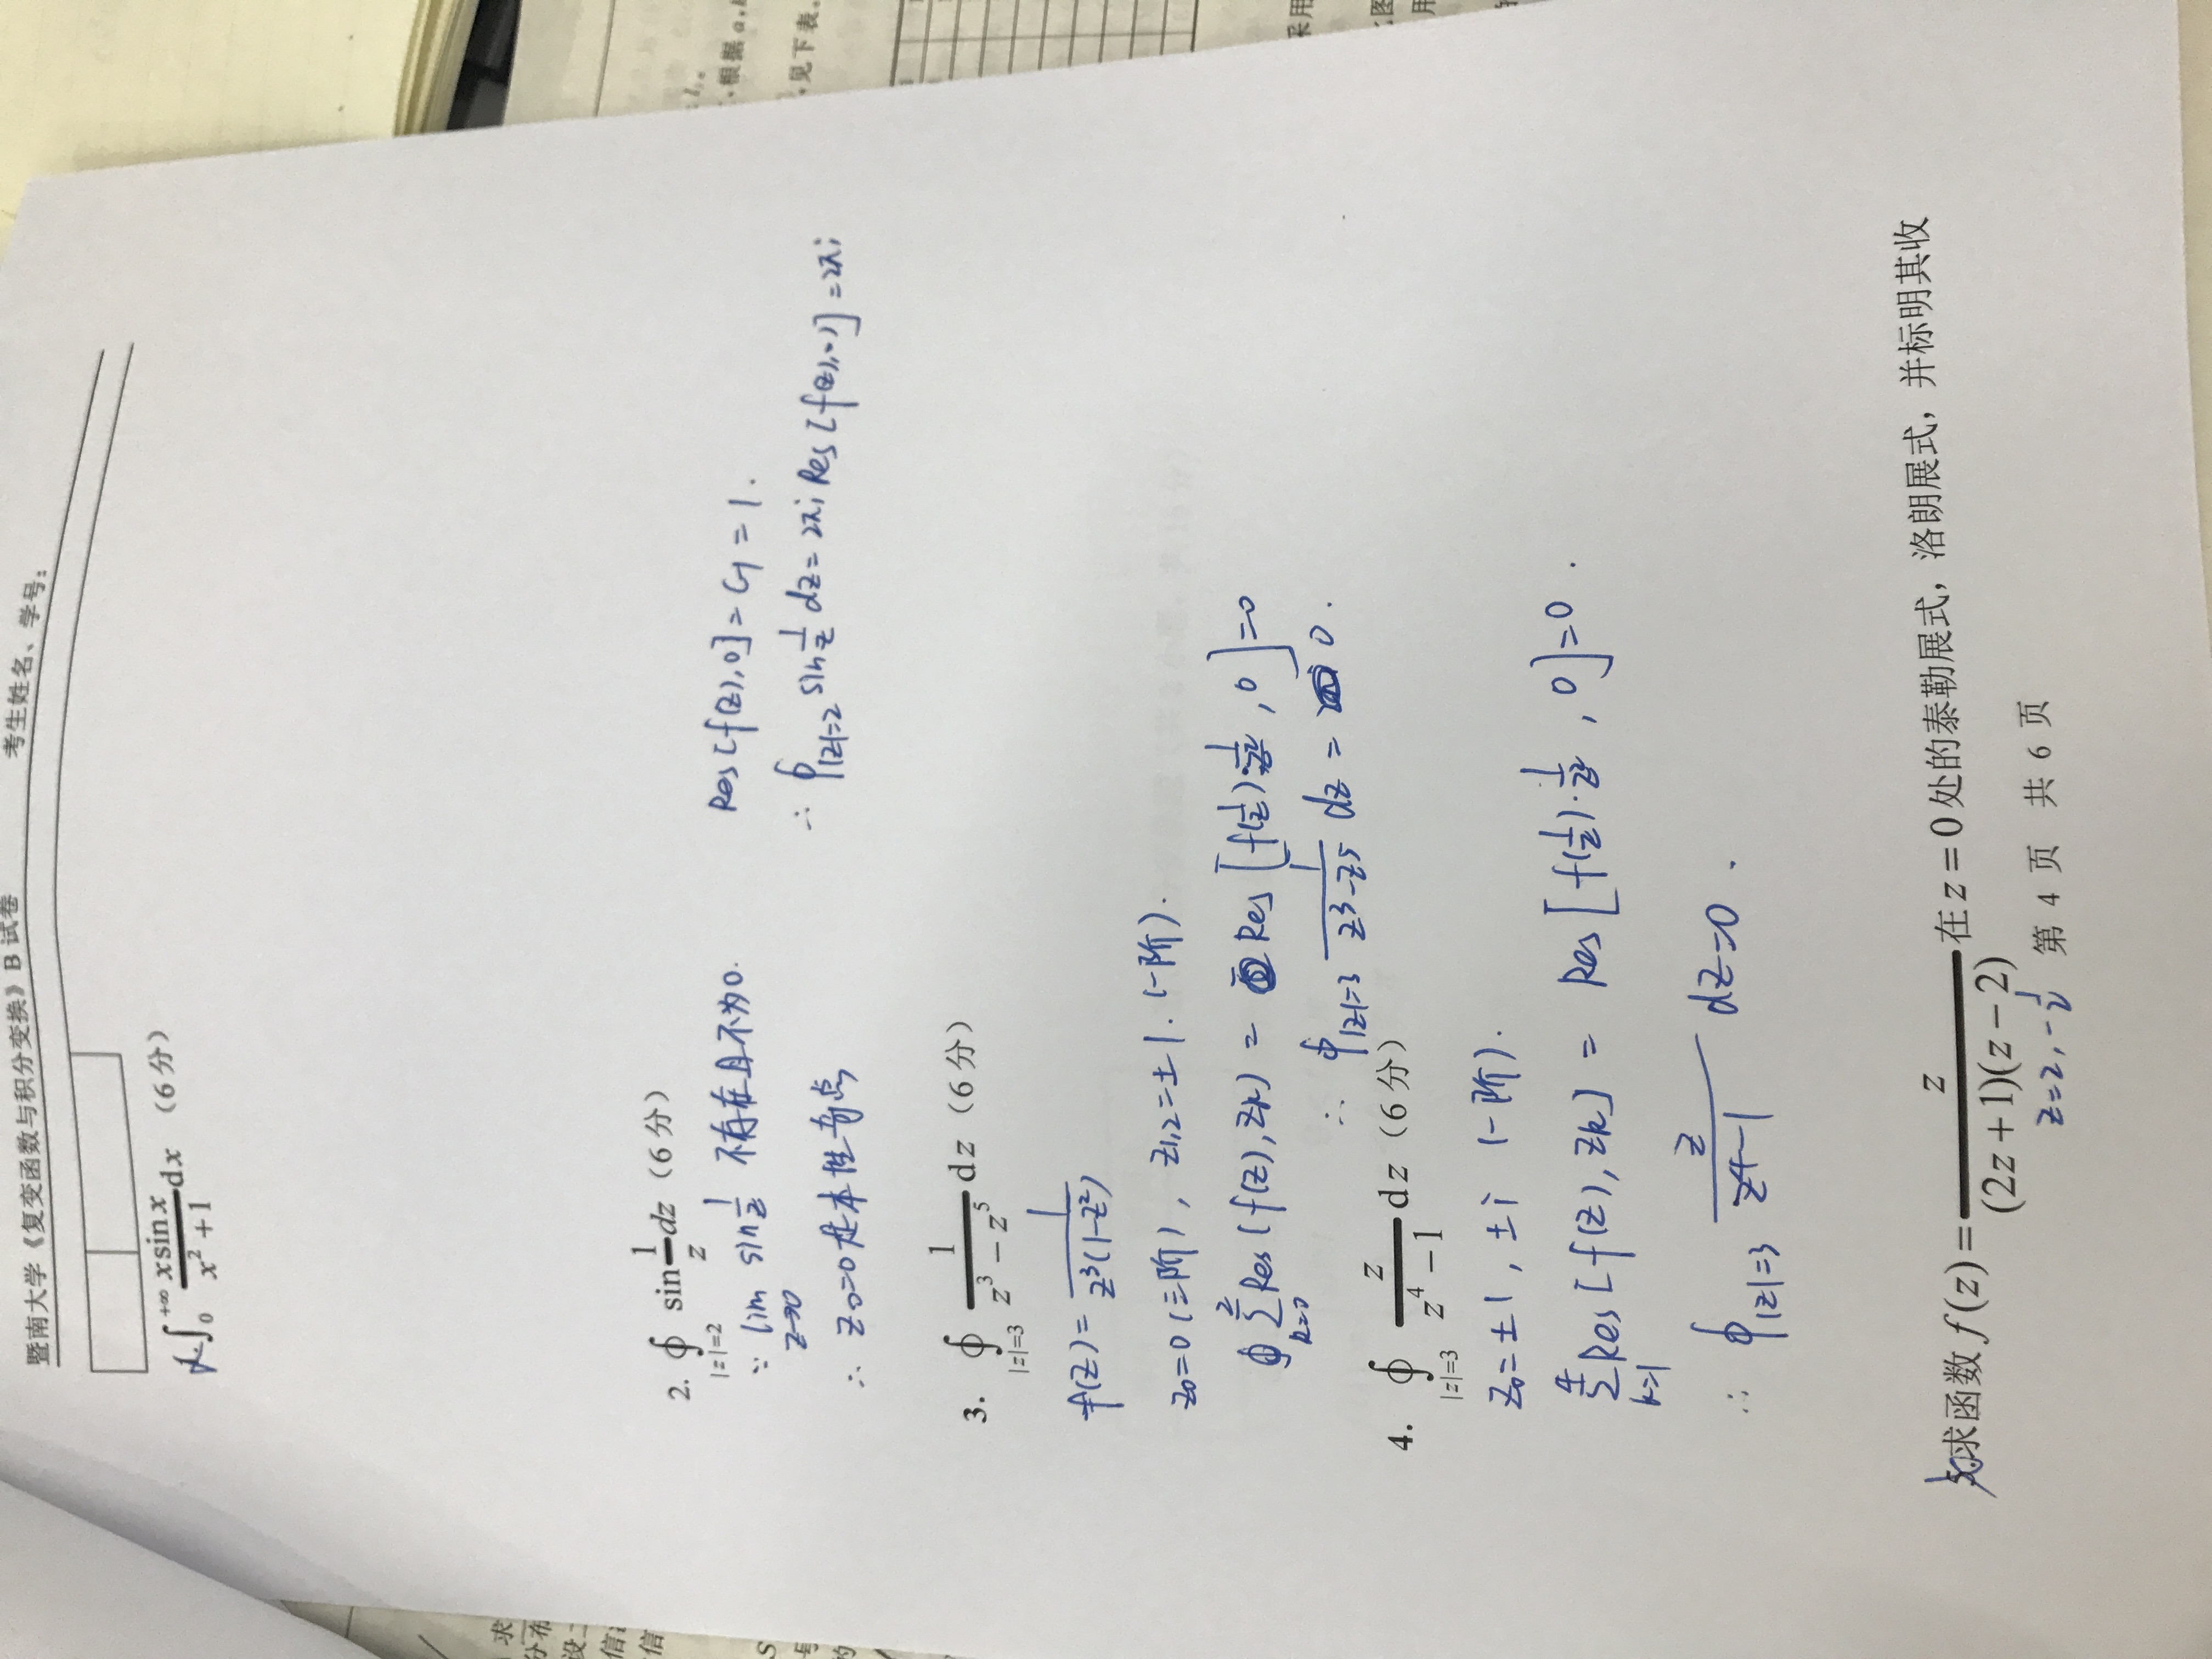 暨南大学《复变函数与积分变换》B 试卷 考生姓名、学号:
1. ∫₀^{+∞} x sin x / (x² + 1) dx （6 分）
2. ∮_{|z|=2} sin 1/z dz（6 分）
∵ lim_{z→0} sin 1/z 不存在且不为0.
∴ z₀=0 是本性奇点
Res[f(z),0] = C₋₁ = 1.
∴ ∮_{|z|=2} sin 1/z dz = 2πi Res[f(z),0] = 2πi
3. ∮_{|z|=3} 1/(z³ − z⁵) dz（6 分）
f(z) = 1/(z³(1−z²))
z₀=0（三阶）, z₁,₂=±1.（一阶）.
∮ Σ_{k=0}^{2} Res(f(z), zₖ) = Res[f(1/z)·1/z², 0]=0
∴ ∮_{|z|=3} 1/(z³−z⁵) dz = 0.
4. ∮_{|z|=3} z/(z⁴ − 1) dz（6 分）
z₀=±1, ±i （一阶）.
Σ_{k=1}^{4} Res[f(z), zₖ] = Res[f(1/z)·1/z², 0]=0.
∴ ∮_{|z|=3} z/(z⁴−1) dz=0.
5.求函数 f(z) = z/((2z+1)(z−2)) 在 z = 0 处的泰勒展式，洛朗展式，并标明其收
z=2, −1/2
第 4 页 共 6 页
求
分布
设二
信
信
S
号
的
根据 a,
见下表。
采用
图
用